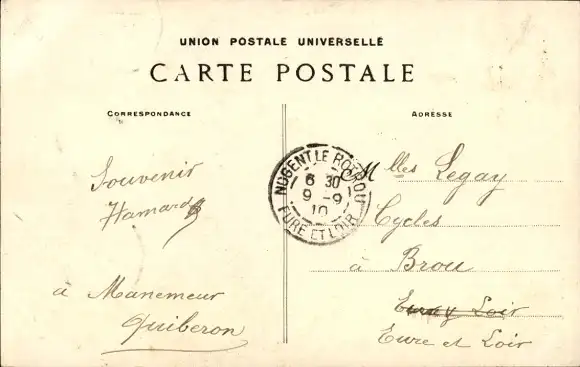 UNION POSTALE UNIVERSELLE
CARTE POSTALE
CORRESPONDANCE
Souvenir
Hamard
à Manemeur
Quiberon
NOGENT LE ROTROU
6 30
9 -9
10
EURE ET LOIR
ADRESSE
Mlles Legay
Cycles
à Brou
Loir
Eure et Loir